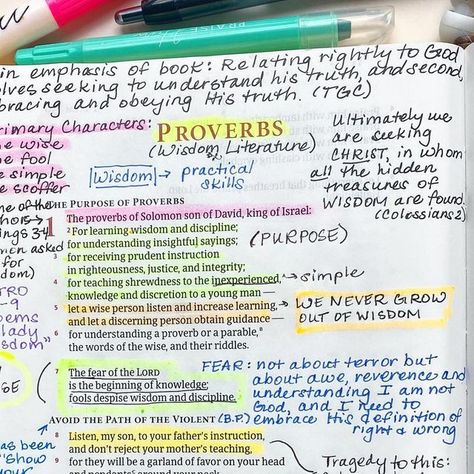 PRAISE
in emphasis of book: Relating rightly to God
olves seeking to understand his truth, and second,
bracing and obeying His truth. (TGC)
rimary Characters:
he wise
he fool
e simple
e scoffer
PROVERBS
(Wisdom Literature)
Wisdom → practical
skills
Ultimately we
are seeking
CHRIST, in whom
all the hidden
treasures of
WISDOM are found.
(Colossians 2)
THE PURPOSE OF PROVERBS
1 The proverbs of Solomon son of David, king of Israel:
2 For learning wisdom and discipline;
for understanding insightful sayings;
(PURPOSE)
3 for receiving prudent instruction
in righteousness, justice, and integrity;
4 for teaching shrewdness to the inexperienced, → simple
knowledge and discretion to a young man —
5 let a wise person listen and increase learning,
and let a discerning person obtain guidance —
→ WE NEVER GROW
OUT OF WISDOM
6 for understanding a proverb or a parable,
the words of the wise, and their riddles.
ne of the
ings 3:4
men asked
for
dom)
TRO
-9
oems
lady
sdom"
7 The fear of the LORD
is the beginning of knowledge;
fools despise wisdom and discipline.
FEAR: not about terror but
about awe, reverence and
understanding I am not
God, and I need to
embrace His definition of
right & wrong
AVOID THE PATH OF THE VIOLENT (B.P.)
8 Listen, my son, to your father's instruction,
and don't reject your mother's teaching,
9 for they will be a garland of favor on your head
and pendants around your neck
as been
"Show
your
Tragedy to this: